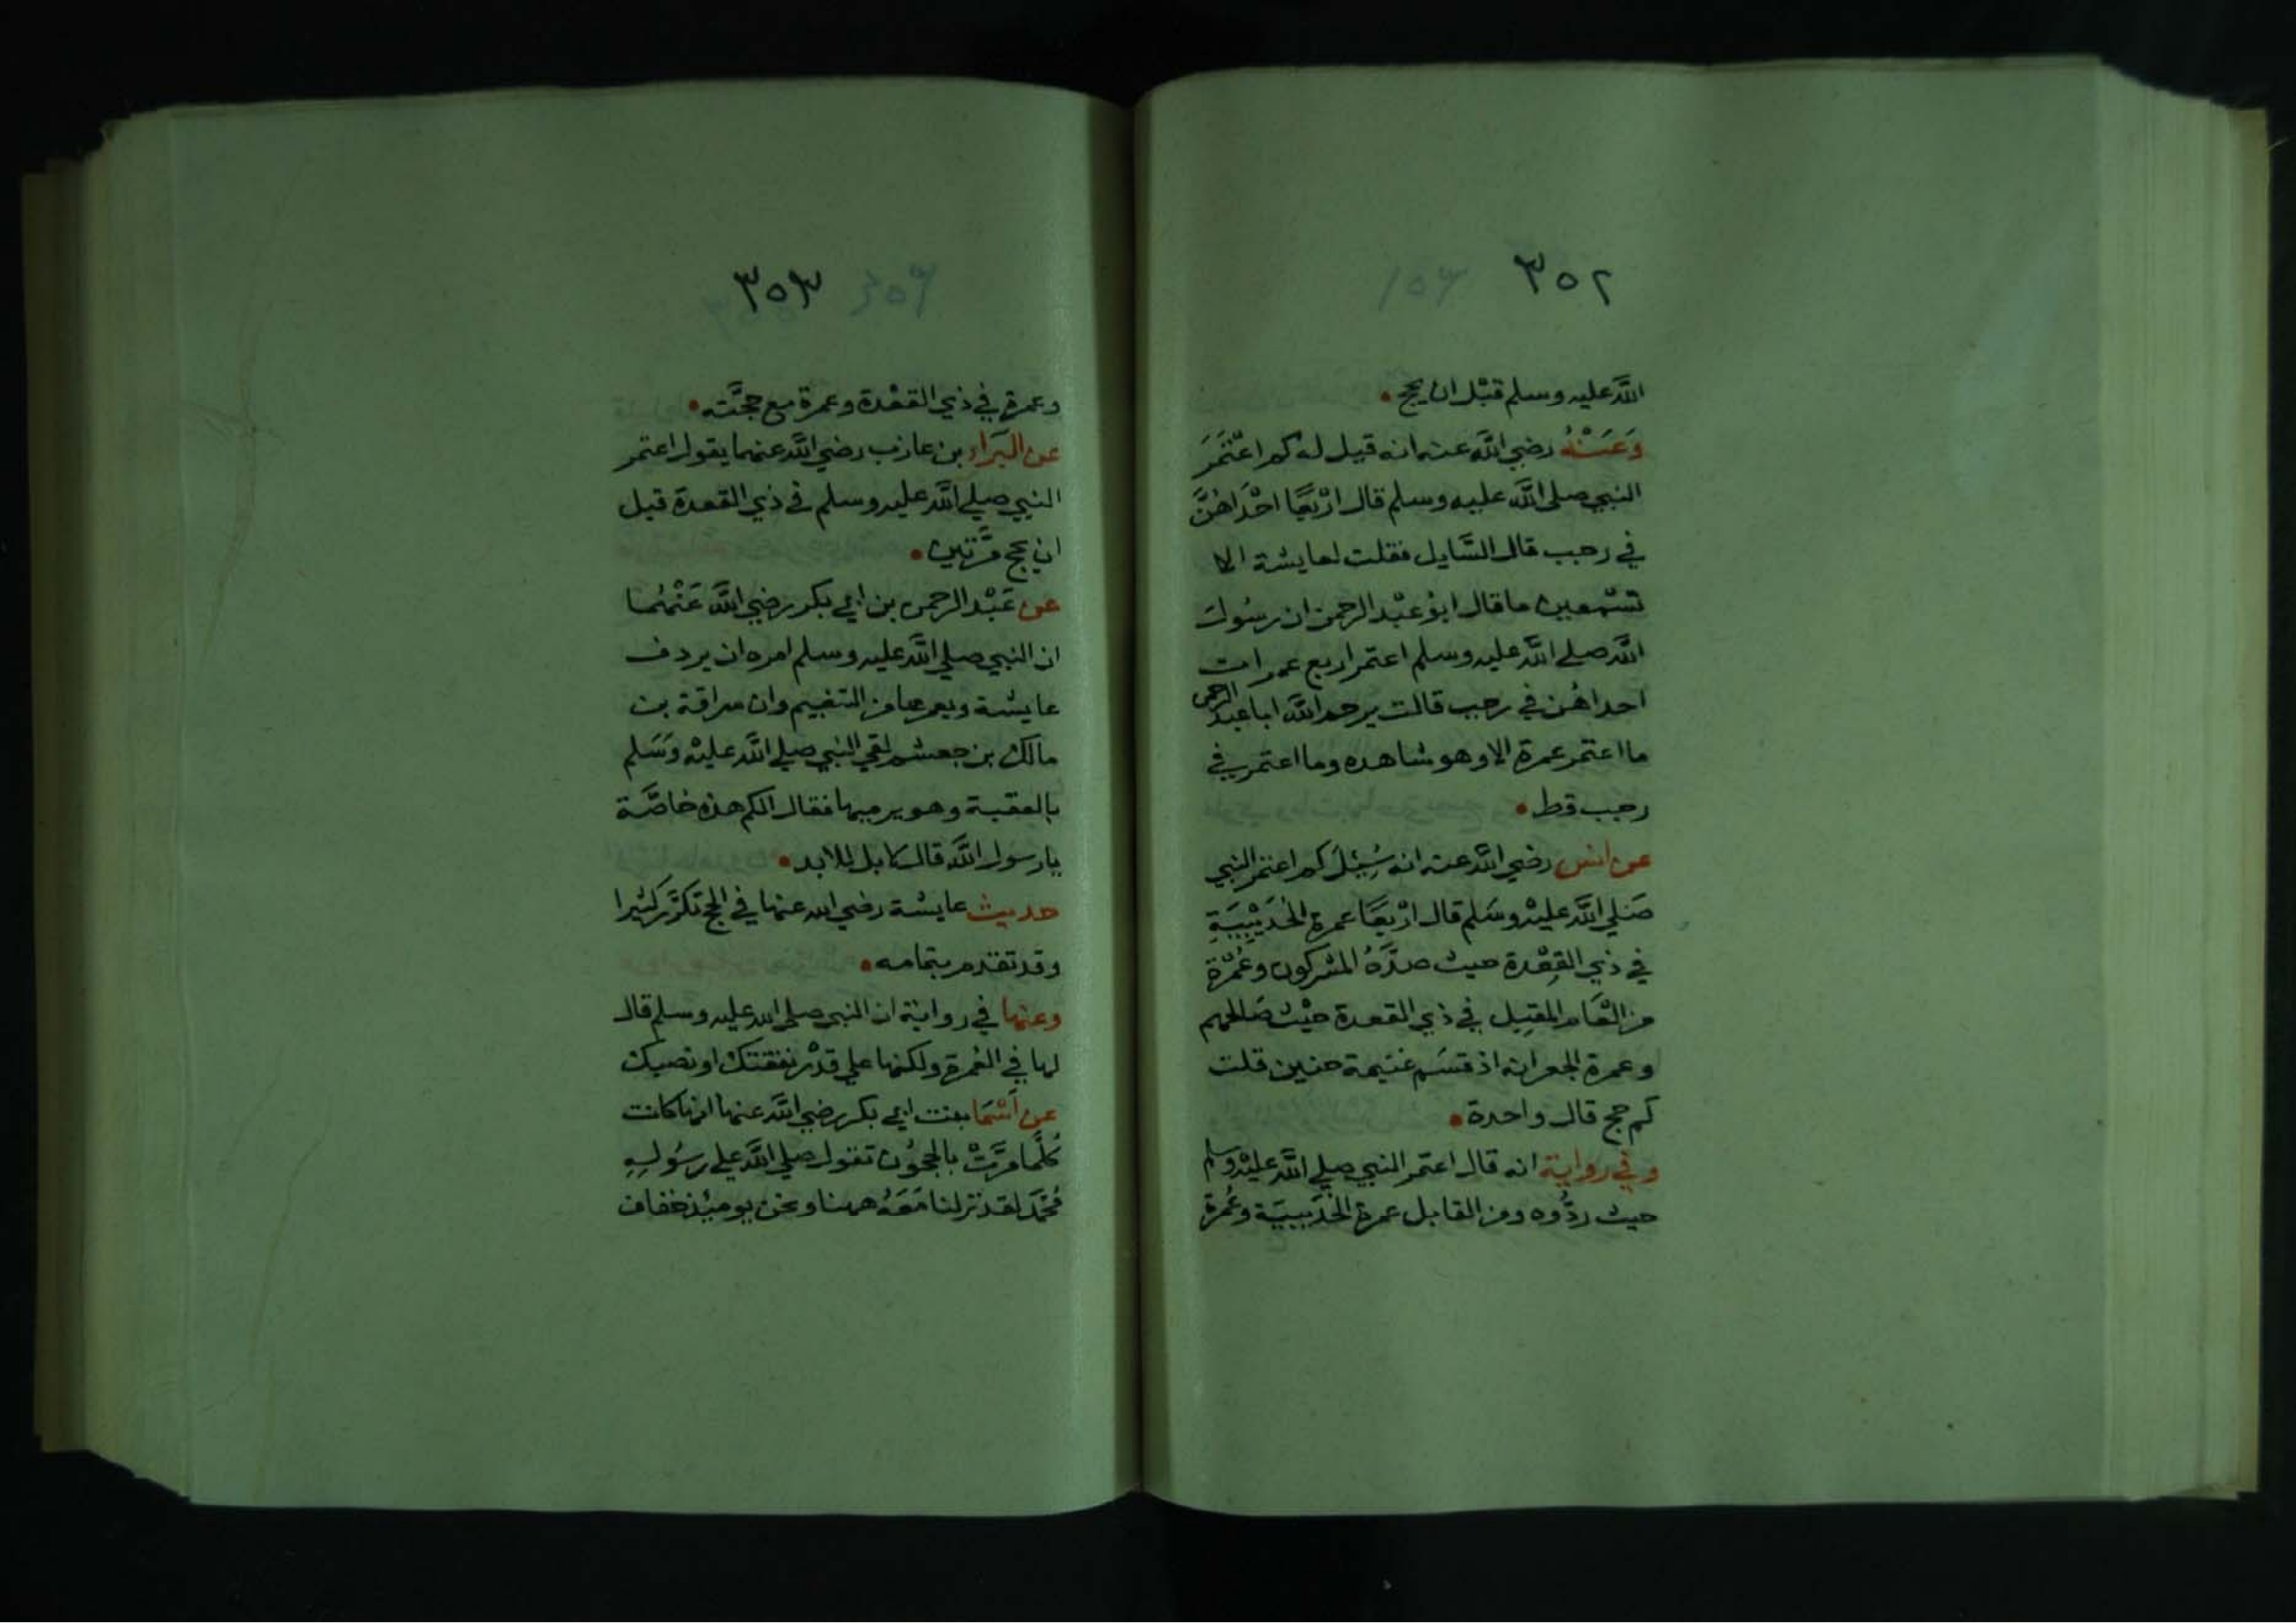 ٣٥٢
الله عليه وسلم قبْل ان يحج
وَعَنْهُ رضي الله عنه انه قيل له كم اعْتَمَرَ
النبي صلى الله عليه وسلم قال ارْبعًا احْدَاهُنَّ
في رجب قال السَّايل فقلت لعايشة الا
تسْمعين ما قال ابوُ عبْد الرحمن ان رسُول
الله صلي الله عليه وسلم اعتمر اربع عمرات
احداهُن في رجب قالت يرحم الله ابا عبد الرحمن
ما اعتمر عمرة الا وهو شاهده وما اعتمر في
رجب قط
عن انس رضي الله عنه انه سُئِلَ كم اعتمر النبي
صَلي الله عليْه وسَلم قال ارْبعًا عمرة الحُدَيْبِيَةِ
في ذي القِعْدة حيث صدَّهُ المشركون وعُمْرة
من العَام المقبل في ذي القعدة حيْث صَالحهم
وعمرة الجعرانه اذ قسَم غنيمة حنين قلت
كم حج قال واحدة
وفي رواية انه قال اعتمر النبي صلي الله عليْه وسلم
حيث ردُّوه ومن القابل عمرة الحُدَيبيَة وعُمرة
٣٥٣
وعمرة في ذي القعْدة وعمرة مع حجَّته
عن البَرَاء بن عازب رضي الله عنهما يقول اعتمر
النبي صلي الله عليه وسلم في ذي القعدة قبل
ان يحج مَرَّتين
عن عَبْد الرحمن بن ابي بكر رضي الله عَنْهُما
ان النبي صلي الله عليه وسلم امره ان يردف
عايشة ويعمرها من التنعيم وان سراقة بن
مالك بن جعشم لقي النبي صلي الله عليْه وَسَلم
بالعقبة وهو يرميها فقال الكم هذه خاصَّة
يا رسول الله قال لا بل للابد
حديث عايشة رضي الله عنها في الحج تكرَّر كثيرا
وقد تقدم بتمامه
وعنها في رواية ان النبي صلي الله عليه وسلم قال
لها في العُمرة ولكنها علي قدْر نفقتك او نصبك
عن أسْمَا بنت ابي بكر رضي الله عنها انها كانت
كُلَّما مرَّتْ بالحجُون تقول صلي الله علي رسُولهِ
مُحَمَّد لقد نزلنا مَعَهُ ههنا ونحن يومئذ خفاف